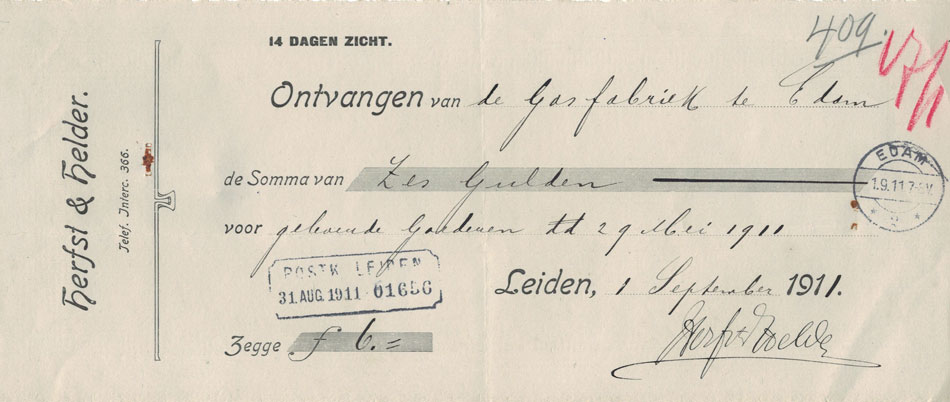 409.
14 DAGEN ZICHT.
Ontvangen van de Gasfabriek te Edam
de Somma van Zes Gulden
voor geleverde Goederen dd 29 Mei 1911
Leiden, 1 September 1911.
Herfst & Helder
Zegge ƒ 6.=
POSTK. LEIDEN
31.AUG.1911 01656
EDAM
1.9.11.7-
Herfst & Helder.
Telef. Interc. 366.